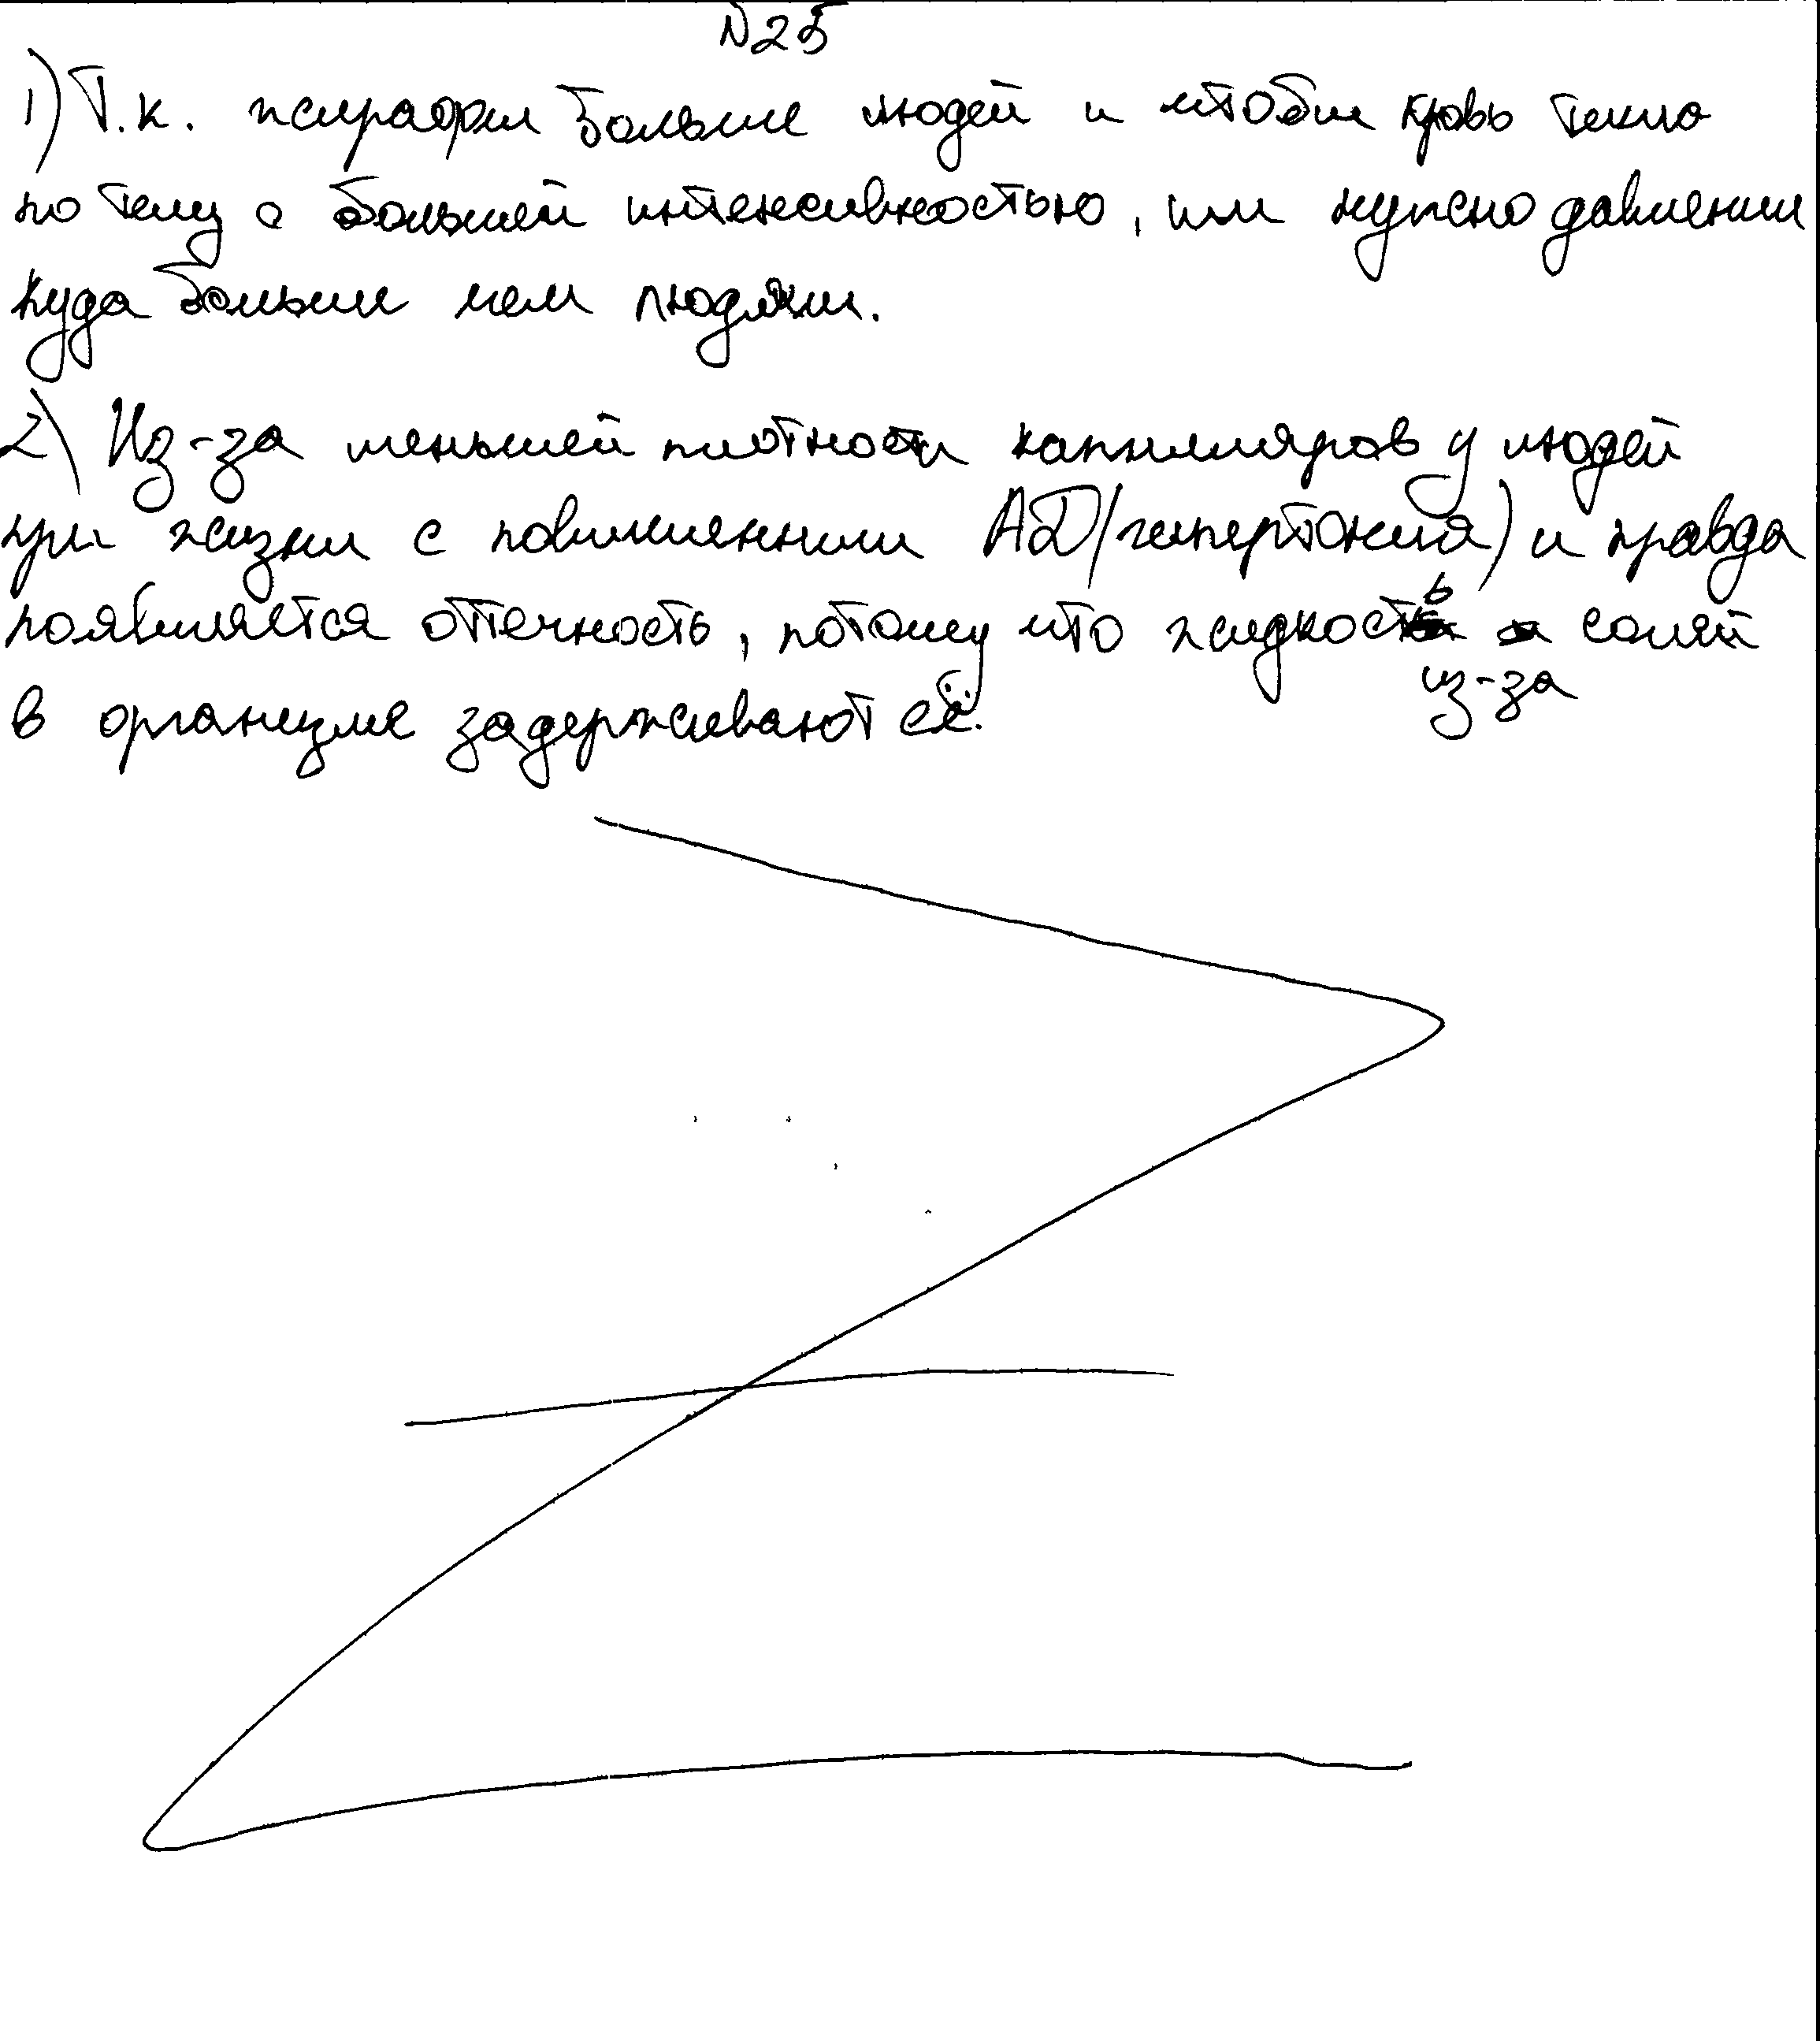 N25
1) Т.к. жирафы больше людей и чтобы кровь текла
по телу с большей интенсивностью, им нужно давление
куда больше чем людям.
2) Из-за меньшей плотности капилляров у людей
при жизни с повышенным АД (гипертония) и правда
появляется отечность, потому что жидкость из-за солей
в организме задерживают её.